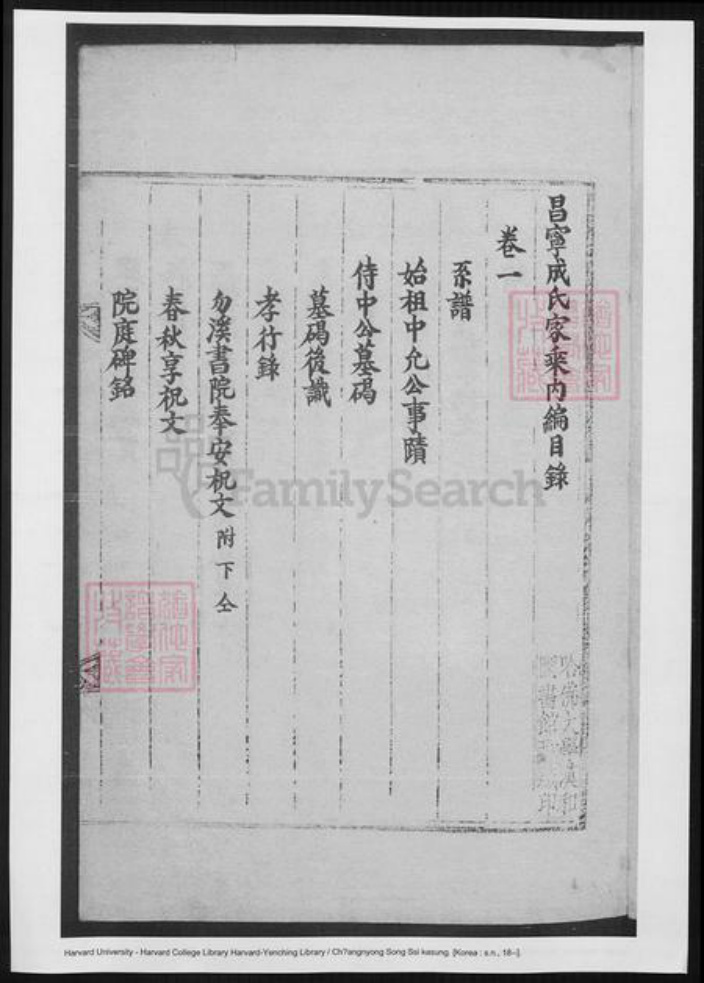 昌寧成氏家乘内編目錄
卷一
系譜
始祖中允公事蹟
侍中公墓碣
墓碣後識
孝行錄
勿溪書院奉安祝文 附下仝
春秋享祝文
院庭碑銘
哈佛大學漢和
圖書館珍藏印
FamilySearch
Harvard University - Harvard College Library Harvard-Yenching Library / Ch?angnyong Song Ssi kasung. [Korea : s.n., 18--].